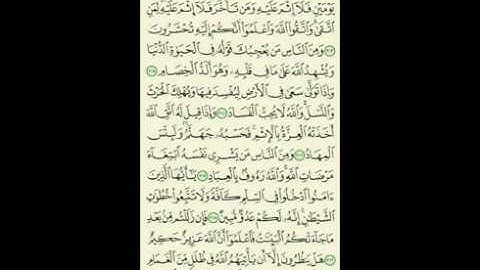 يَوْمَيْنِ فَلَآ إِثْمَ عَلَيْهِ وَمَن تَأَخَّرَ فَلَآ إِثْمَ عَلَيْهِ لِمَنِ
ٱتَّقَىٰ وَٱتَّقُوا۟ ٱللَّهَ وَٱعْلَمُوٓا۟ أَنَّكُمْ إِلَيْهِ تُحْشَرُونَ
۝٢٠٣ وَمِنَ ٱلنَّاسِ مَن يُعْجِبُكَ قَوْلُهُۥ فِى ٱلْحَيَوٰةِ ٱلدُّنْيَا
وَيُشْهِدُ ٱللَّهَ عَلَىٰ مَا فِى قَلْبِهِۦ وَهُوَ أَلَدُّ ٱلْخِصَامِ ۝٢٠٤
وَإِذَا تَوَلَّىٰ سَعَىٰ فِى ٱلْأَرْضِ لِيُفْسِدَ فِيهَا وَيُهْلِكَ ٱلْحَرْثَ
وَٱلنَّسْلَ وَٱللَّهُ لَا يُحِبُّ ٱلْفَسَادَ ۝٢٠٥ وَإِذَا قِيلَ لَهُ ٱتَّقِ ٱللَّهَ
أَخَذَتْهُ ٱلْعِزَّةُ بِٱلْإِثْمِ فَحَسْبُهُۥ جَهَنَّمُ وَلَبِئْسَ
ٱلْمِهَادُ ۝٢٠٦ وَمِنَ ٱلنَّاسِ مَن يَشْرِى نَفْسَهُ ٱبْتِغَآءَ
مَرْضَاتِ ٱللَّهِ وَٱللَّهُ رَءُوفٌۢ بِٱلْعِبَادِ ۝٢٠٧ يَٰٓأَيُّهَا ٱلَّذِينَ
ءَامَنُوا۟ ٱدْخُلُوا۟ فِى ٱلسِّلْمِ كَآفَّةً وَلَا تَتَّبِعُوا۟ خُطُوَٰتِ
ٱلشَّيْطَٰنِ إِنَّهُۥ لَكُمْ عَدُوٌّ مُّبِينٌ ۝٢٠٨ فَإِن زَلَلْتُم مِّنۢ بَعْدِ
مَا جَآءَتْكُمُ ٱلْبَيِّنَٰتُ فَٱعْلَمُوٓا۟ أَنَّ ٱللَّهَ عَزِيزٌ حَكِيمٌ
۝٢٠٩ هَلْ يَنظُرُونَ إِلَّآ أَن يَأْتِيَهُمُ ٱللَّهُ فِى ظُلَلٍ مِّنَ ٱلْغَمَامِ